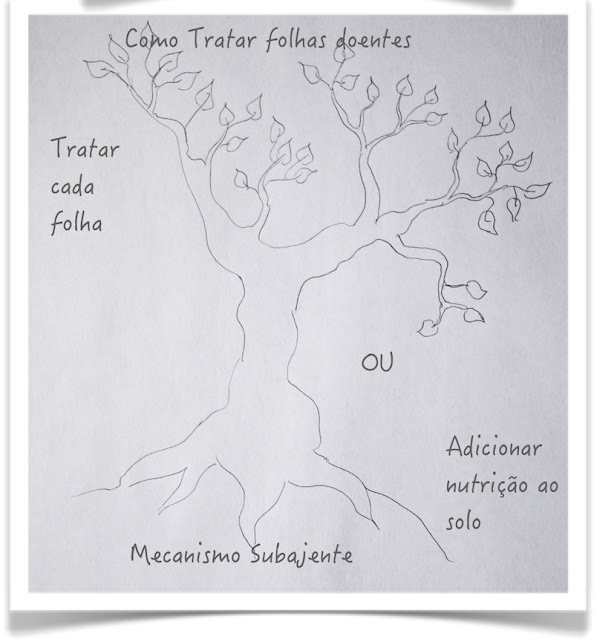 Como Tratar folhas doentes
Tratar
cada
folha
OU
Adicionar
nutrição ao
solo
Mecanismo Subajente